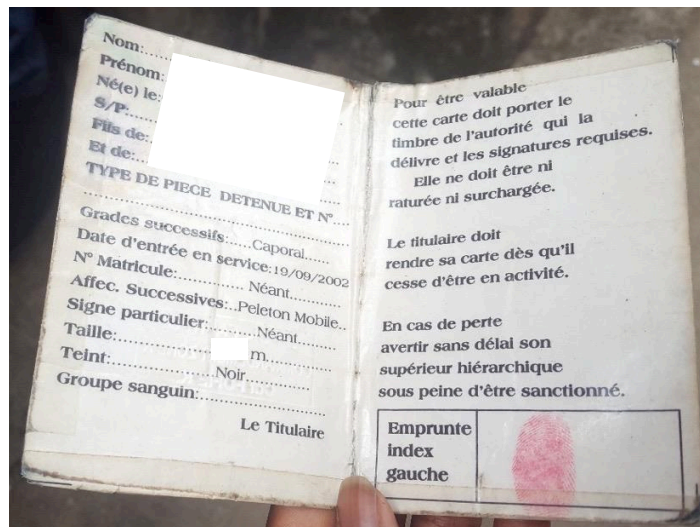 Nom:......
Prénom:
Né(e) le:
S/P.......
Fils de:
Et de:...
TYPE DE PIECE DETENUE ET N°...
Grades successifs:.....Caporal......
Date d'entrée en service:19/09/2002
N° Matricule:............. Néant...........
Affec. Successives:..Peleton Mobile..
Signe particulier:..........Néant........
Taille:................ m............
Teint:.................Noir..............
Groupe sanguin:......................
Le Titulaire
Pour être valable
cette carte doit porter le
timbre de l'autorité qui la
délivre et les signatures requises.
Elle ne doit être ni
raturée ni surchargée.
Le titulaire doit
rendre sa carte dès qu'il
cesse d'être en activité.
En cas de perte
avertir sans délai son
supérieur hiérarchique
sous peine d'être sanctionné.
Emprunte
index
gauche